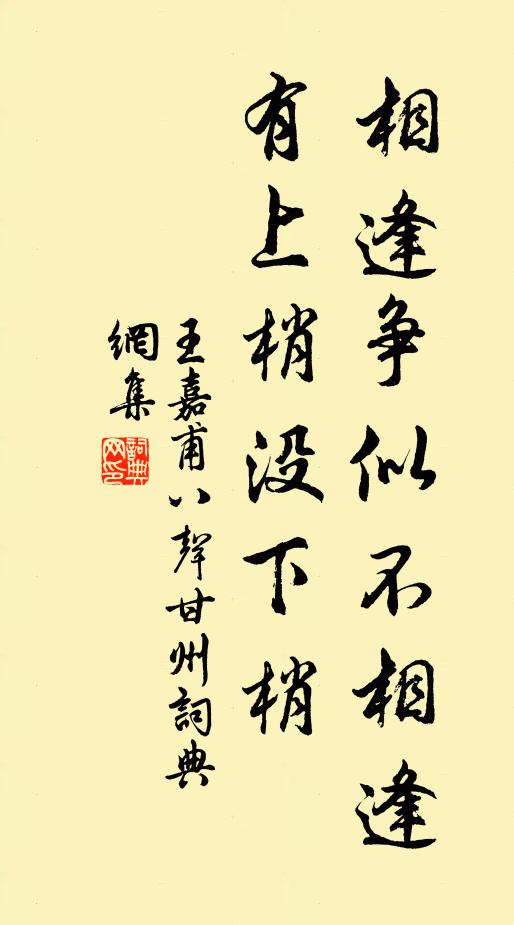 相逢争似不相逢
有上梢没下梢
王嘉甫八聲甘州詞典
網集
詞典
网印